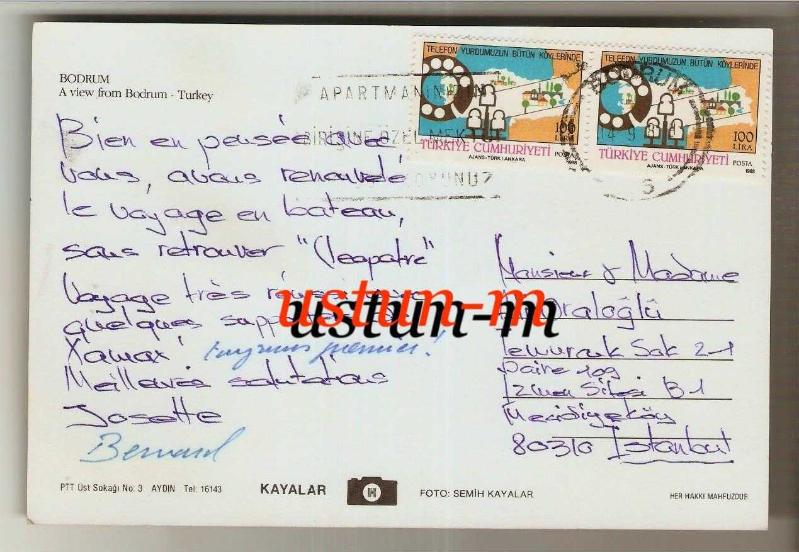 BODRUM
A view from Bodrum - Turkey
TELEFON YURDUMUZUN BÜTÜN KÖYLERİNDE
100
LİRA
TÜRKİYE CUMHURİYETİ POSTA
AJANS-TÜRK/ANKARA
TELEFON YURDUMUZUN BÜTÜN KÖYLERİNDE
100
LİRA
TÜRKİYE CUMHURİYETİ POSTA
AJANS-TÜRK/ANKARA 1988
APARTMANINIZIN
BODRUM
14.9.8
5
Bien en pensée avec
vous, avons renouvelé
le voyage en bateau,
sans retrouver "Cleopatre"
Voyage très
quelques
Xamax! toujours premier!
Meilleures salutations
Josette
Bernard
Monsieur & Madame
Sok 21
Daire 109
İzmen Sitesi B1
Mecidiyeköy
80310 Istanbul
ustun-m
ustun-m
PTT Üst Sokağı No: 3 AYDIN Tel: 16143
KAYALAR
FOTO: SEMİH KAYALAR
HER HAKKI MAHFUZDUR